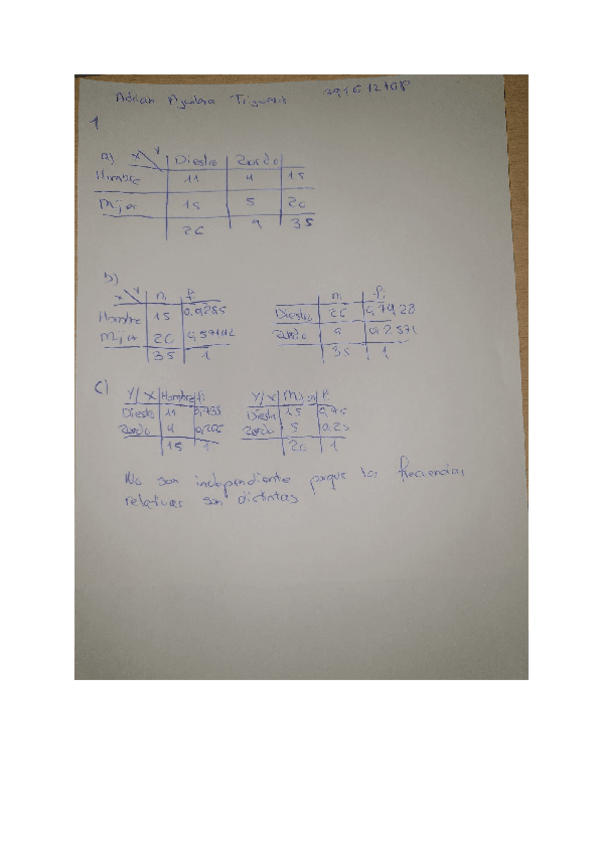 Adrian
1
a) X Y Diestro Zurdo
Hombre 11 4 15
Mujer 15 5 20
26 9 35
b)
X Y ni fi
Hombre 15 0,4285
Mujer 20 0,5714
35 1
ni fi
Diestro 26 0,7428
Zurdo 9 0,2571
35 1
c) Y/X Hombre fi
Diestro 11
Zurdo 4
15 1
Y/X fi
Diestro 15 0,75
Zurdo 5 0,25
20 1
No son independiente porque las frecuencias
relativas son distintas